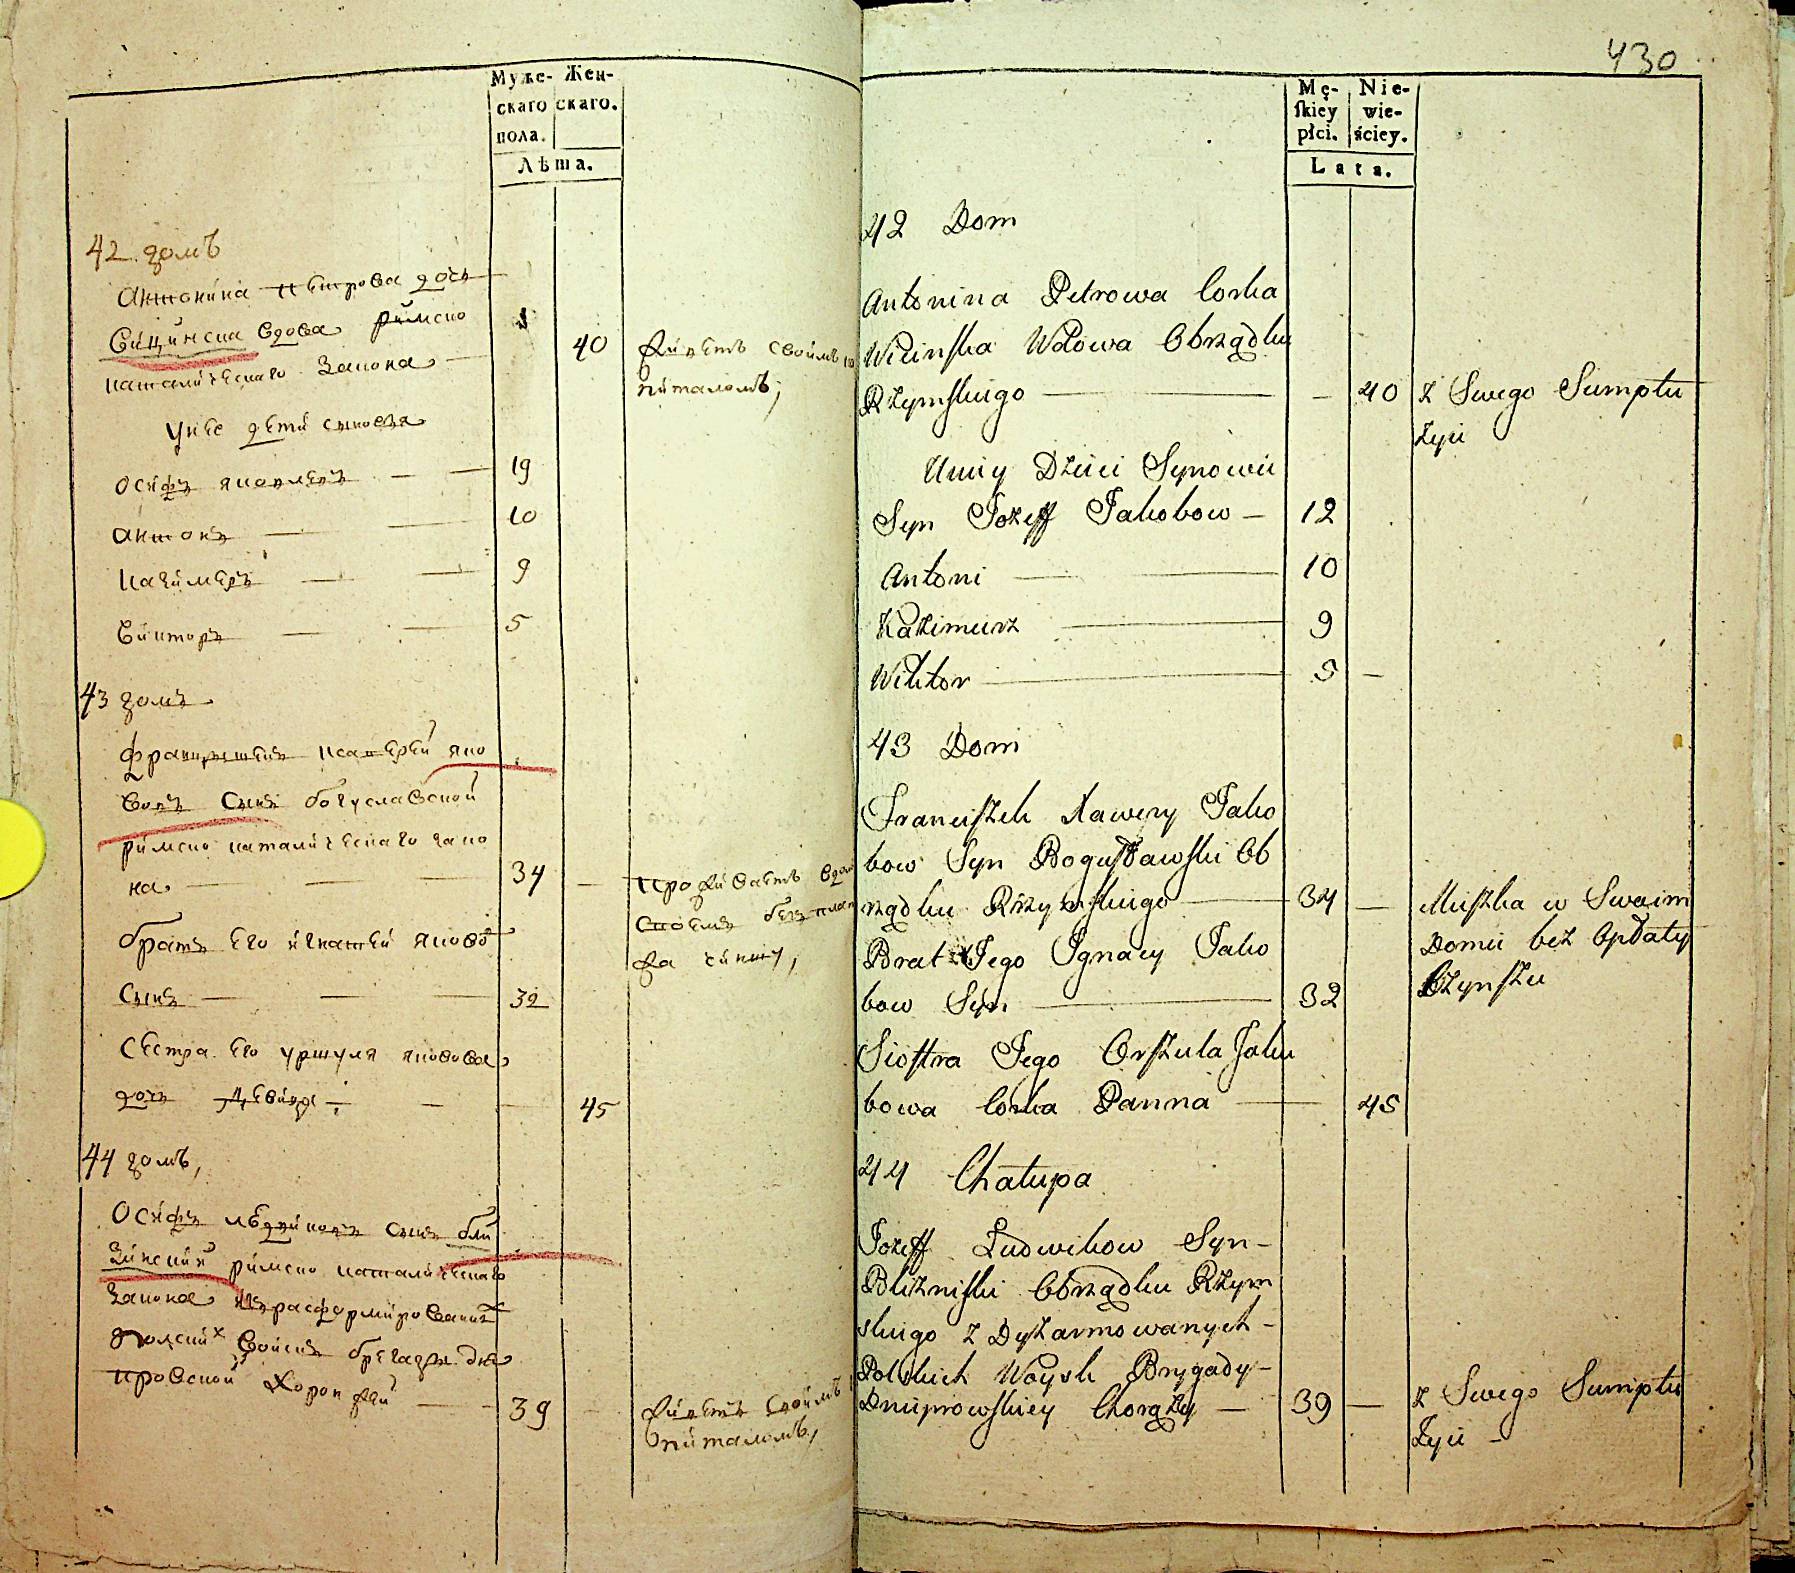 Муже- Жен-
скаго скаго.
пола.
Лѣта.
42 домъ
Антонина Петрова дочь
Вицинска вдова римско
католическаго закона 40 живетъ своимъ
питаломъ;
у нее дети сыновя
Осифъ Яковлевъ 19
Антонъ 10
Казимеръ 9
Викторъ 5
43 домъ
Францишекъ Ксаверей Яко
вовъ сынъ Богуславской
римско католическаго зако
на 34 проживаетъ
своемъ безъ
жа чиншу,
братъ его Игнатей Яковов
сынъ 32
сестра его Уршуля Яковова
дочь девица 45
44 домъ,
Осифъ Людвиковъ сынъ Бли
зинский римско католическаго
закона израсформированих
Полских войскъ брегады дне
провской хоронжей 39 живетъ своимъ
питаломъ,
430
Mę- Nie-
skiey wie-
płci. ściey.
Lata.
42 Dom
Antonina Petrowa Corka
Wicinska Wdowa Obrządku
Rzymskiego 40 z Swego Sumptu
żyie
U niey Dzieci Synowie
Syn Jozeff Jakobow 12
Antoni 10
Kazimierz 9
Wiktor 5
43 Dom
Franciszek Xawery Jako
bow Syn Bogusławski Ob
rządku Rzymskiego 34 Miszka w Swoim
Domu bez Opłaty
Czynszu
Brat Jego Ignacy Jako
bow Syn 32
Siostra Jego Orszula Jako
bowa Corka Panna 45
44 Chałupa
Jozeff Ludwikow Syn
Blizniski Obrządku Rzym
skiego z Dyzarmowanych
Polskich Woysk Brygady
Dnieprowskiey Chorąży 39 z Swego Sumptu
Żyie